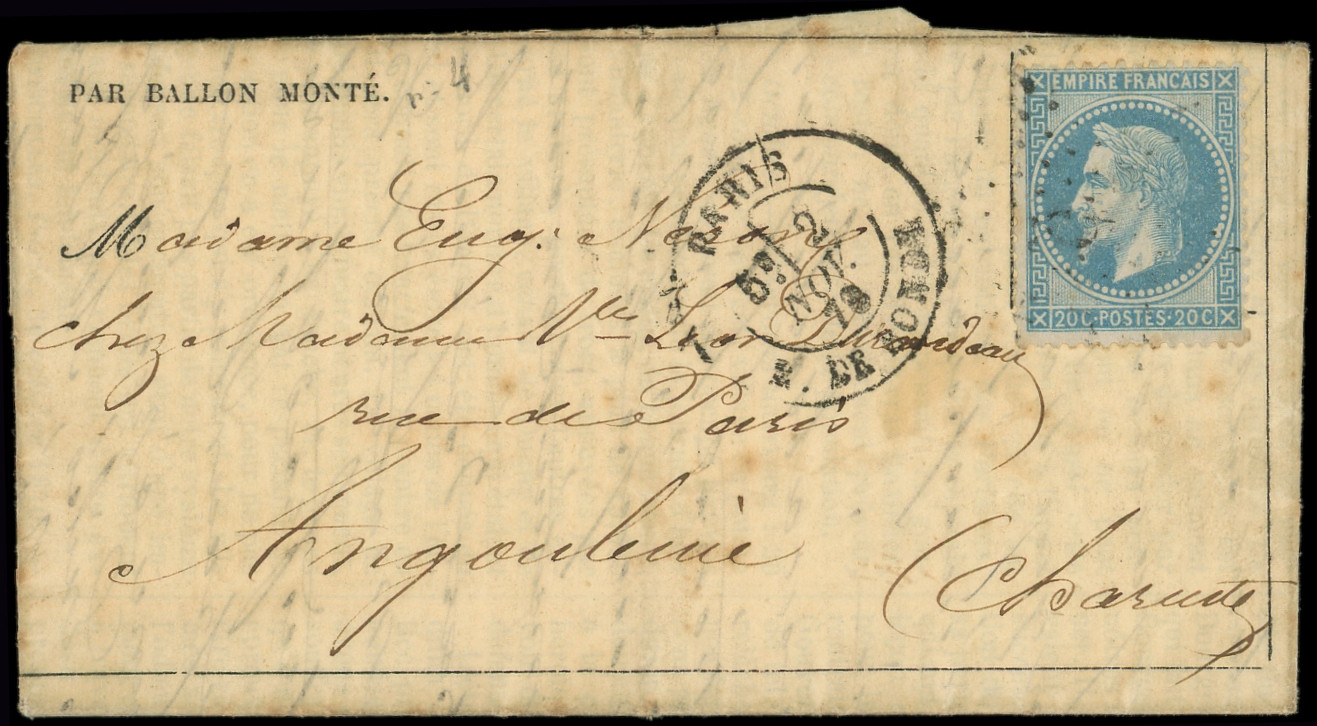 PAR BALLON MONTÉ.
n: 4
EMPIRE FRANÇAIS
20C·POSTES·20C
PARIS
R. DE BONDY
5ᴱ
2
NOV.
70
Madame Eug.
chez Madame Vve Léon
rue de Paris
Angoulême (Charente)